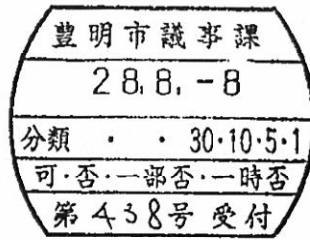 豊明市議事課
28.8.-8
分類 ・ ・ 30・10・5・1
可・否・一部否・一時否
第438号 受付